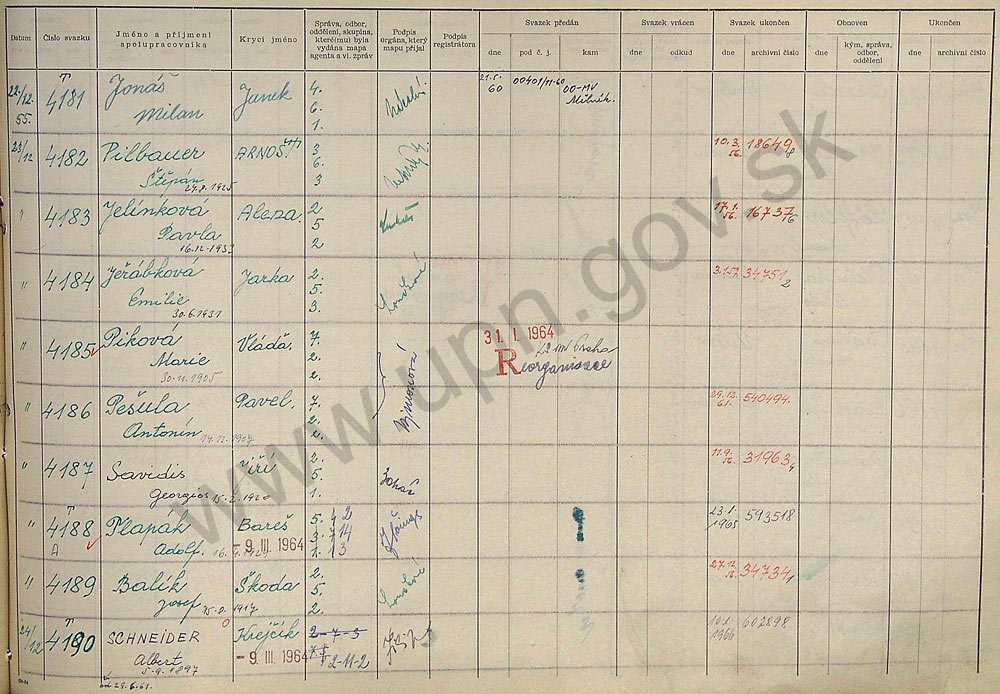 Datum
Číslo svazku
Jméno a příjmení spolupracovníka
Krycí jméno
Správa, odbor, oddělení, skupina, které(mu) byla vydána mapa agenta a vl. zpráv
Podpis orgána, který mapu přijal
Podpis registrátora
Svazek předán
dne
pod č. j.
kam
Svazek vrácen
dne
odkud
Svazek ukončen
dne
archivní číslo
Obnoven
dne
kým, správa, odbor, oddělení
Ukončen
dne
archivní číslo
22./12. 55. T 4181 Jonáš Junek 4. 21.5. 60 00401/11-60 00-MV Mělník.
Milan 6.
1.
23/12 4182 Pilbauer ARNOŠT 3 10.3. 56. 18649/8
Štěpán 6.
24.8.1925 3
" 4183 Jelínková Alena. 2. 17.1. 56. 16737/6
Pavla 5
16.12.1933 2
" 4184 Jeřábková Jarka 2. 3.1.57. 34751/2
Emilie 5.
30.6.1931 3.
" 4185 Piková Vláďa. 7. 31. I. 1964
Marie 2. Reorganisace Praha
30.11.1905 2.
" 4186 Pešula Pavel. 7. 29.12. 61. 540494.
Antonín 2.
1907 2.
" 4187 Savidis Jiří 2. 11.9. 56. 31963/4
Georgios 5.
1920 1.
" T 4188 Plapák Bareš 5. 4 2 23.1. 1965 593518
A Adolf. - 9. III. 1964 3. 7 14
1. 1 3
" 4189 Balík Škoda 2. 27.12. 56. 34734/1
Josef 5.
1917 2.
24/12 T 4190 SCHNEIDER Krejčík 2-7-3 10.1. 1966 602898
Albert - 9. III. 1964 2-11-2
5.9.1897
29.6.61.
www.upn.gov.sk